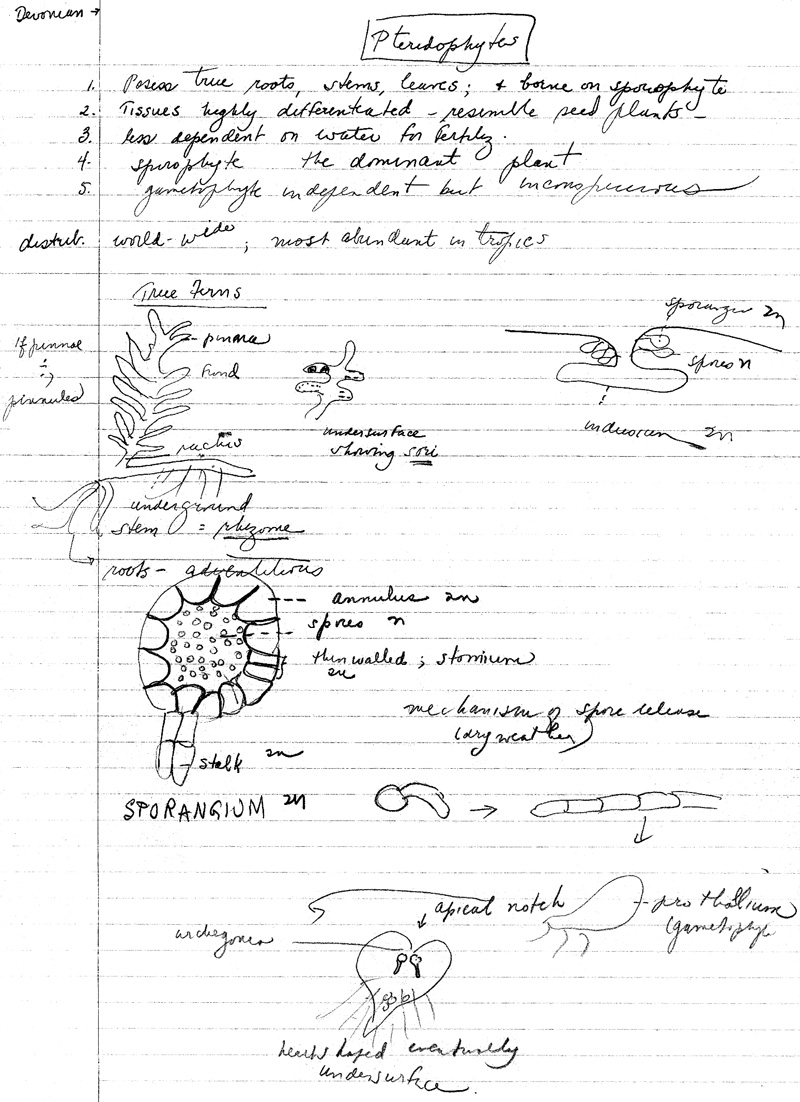 Devonian →
Pteridophytes
1. Posess true roots, stems, leaves; & borne on sporophyte
2. Tissues highly differentiated – resemble seed plants –
3. less dependent on water for fertiliz.
4. sporophyte the dominant plant
5. gametophyte independent but inconspicuous
distrib. world-wide; most abundant in tropics
True Ferns
pinna
frond
rachis
If pinnae
pinnules
undersurface
showing sori
sporangium 2n
spores n
indusium 2n
underground
stem = rhizome
roots – adventitious
annulus 2n
spores n
thin walled; stomium
2n
stalk 2n
SPORANGIUM 2n
mechanism of spore release
(dry weather)
apical notch
prothallium
(gametophyte
archegonia
heart shaped eventually
undersurface.